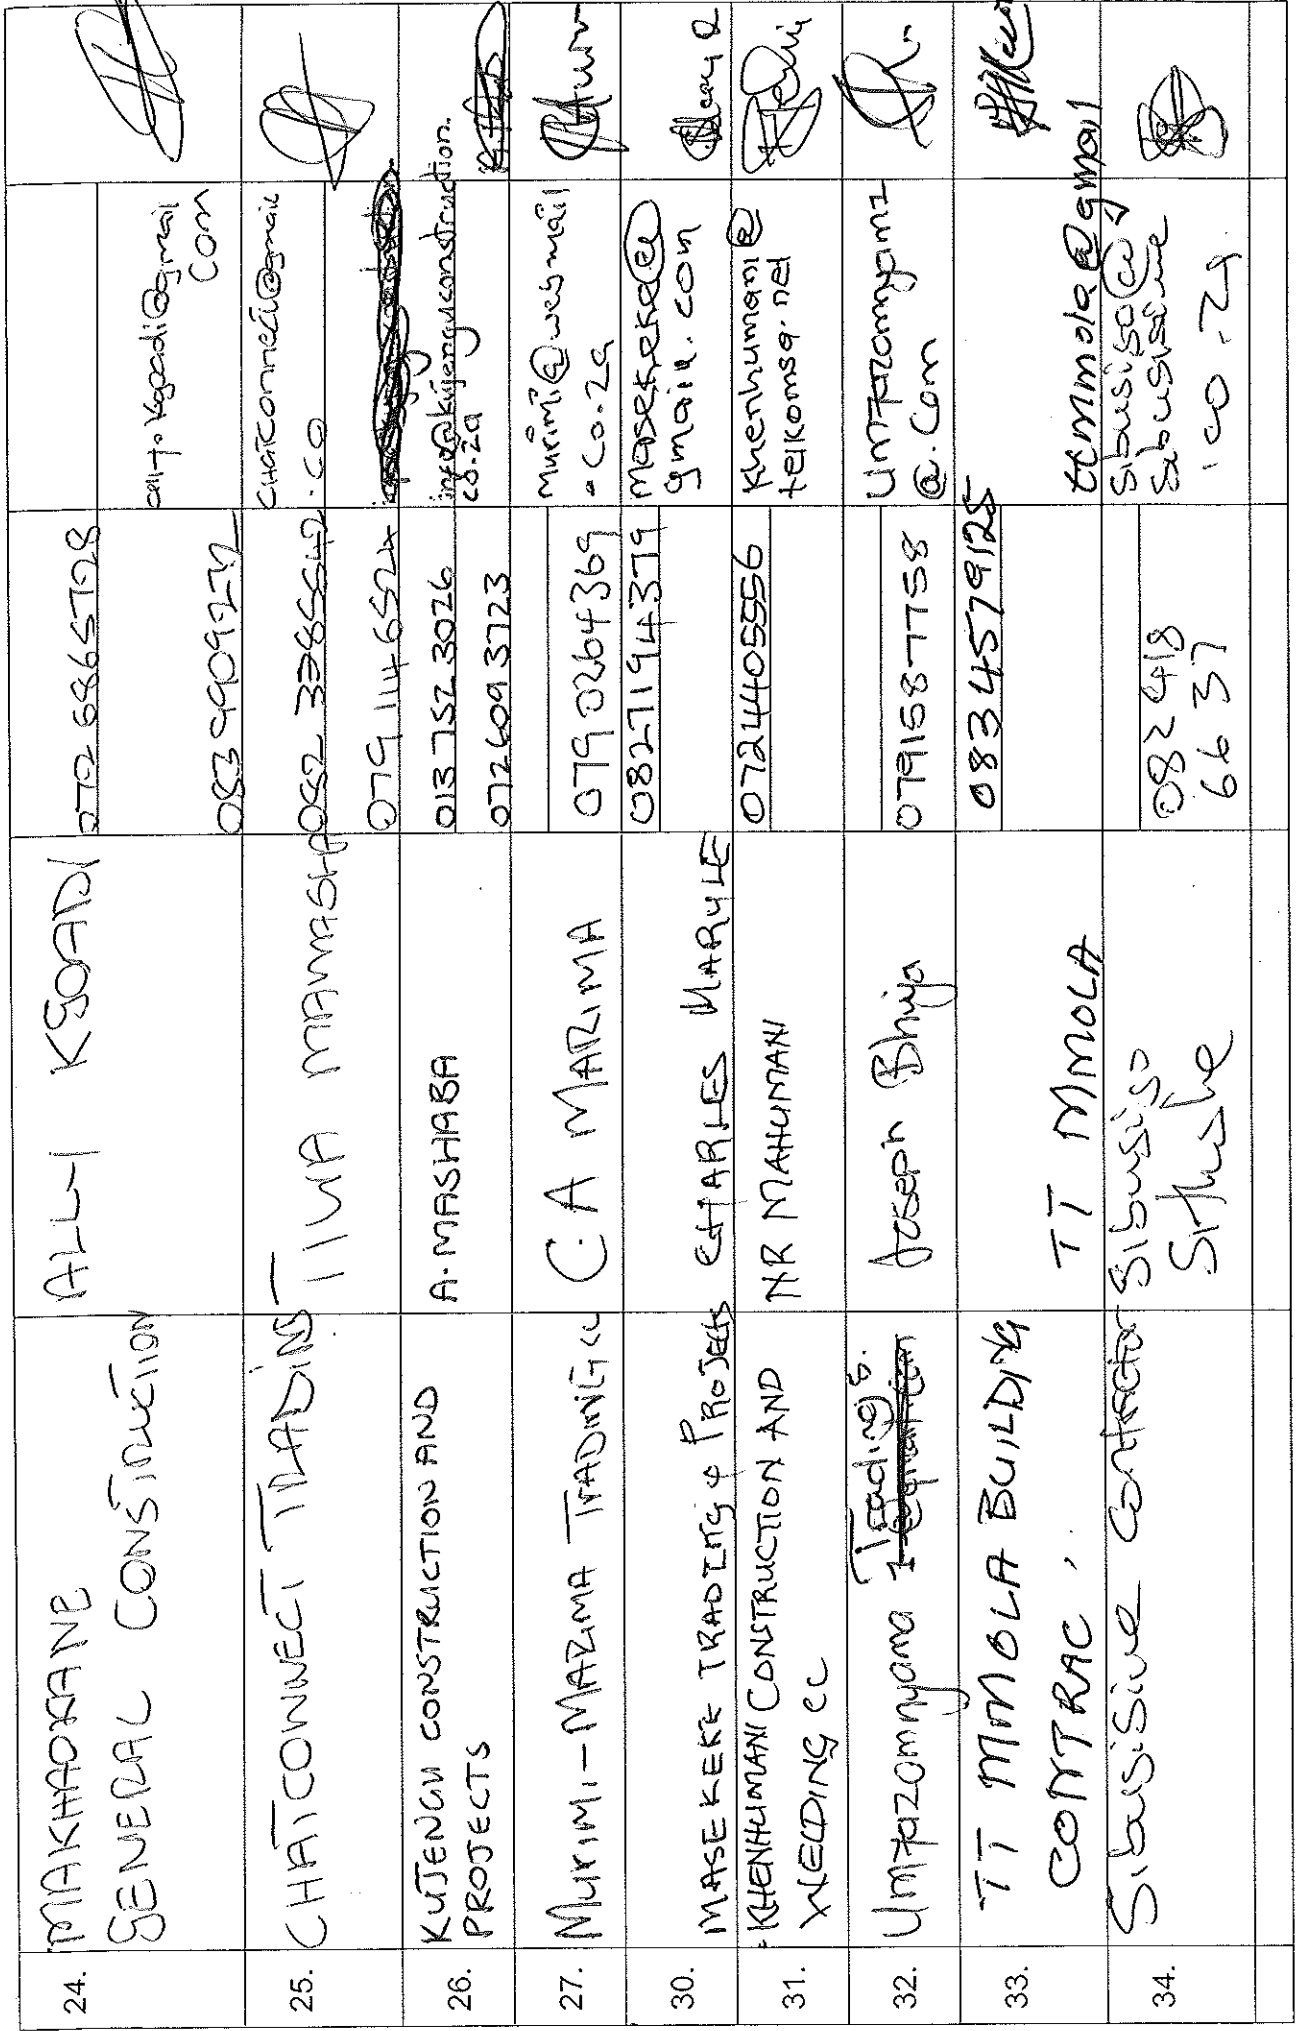 24.
MAKHAOKANE
GENERAL CONSTRUCTION
ALLY KGOADI
0726865728
083 9909272
@gmail
com
25.
CHATCONNECT TRADING
TIUA MAMASHA
082 3385542
079 114 6524
chatconnect@gmail
.co
26.
KUJENGU CONSTRUCTION AND
PROJECTS
A. MASHABA
013 752 3026
072 609 3723
info@kujenguconstruction.
co.za
27.
Murimi-MARIMA TRADING CC
C. A MARIMA
079 0264369
Murimi@webmail
.co.za
30.
MASEKEKE TRADING & PROJECTS
CHARLES MARULE
0827194379
masekeke@
gmail.com
31.
KHENHUMANI CONSTRUCTION AND
WELDING CC
NR MAHUMANI
0724405556
Khenhumani@
telkomsa.net
32.
Umtazomnyama Trading
Joseph Bhiya
0791587758
Umtazomnyama
@.com
33.
TT MMOLA BUILDING
CONTRAC.
TT MMOLA
083 4579125
ttmmola@gmail
34.
Sibusisiwe Contractor
Sibusiso
Sithole
082 418
66 37
Sibusiso@
Sibusisiwe
.co.za